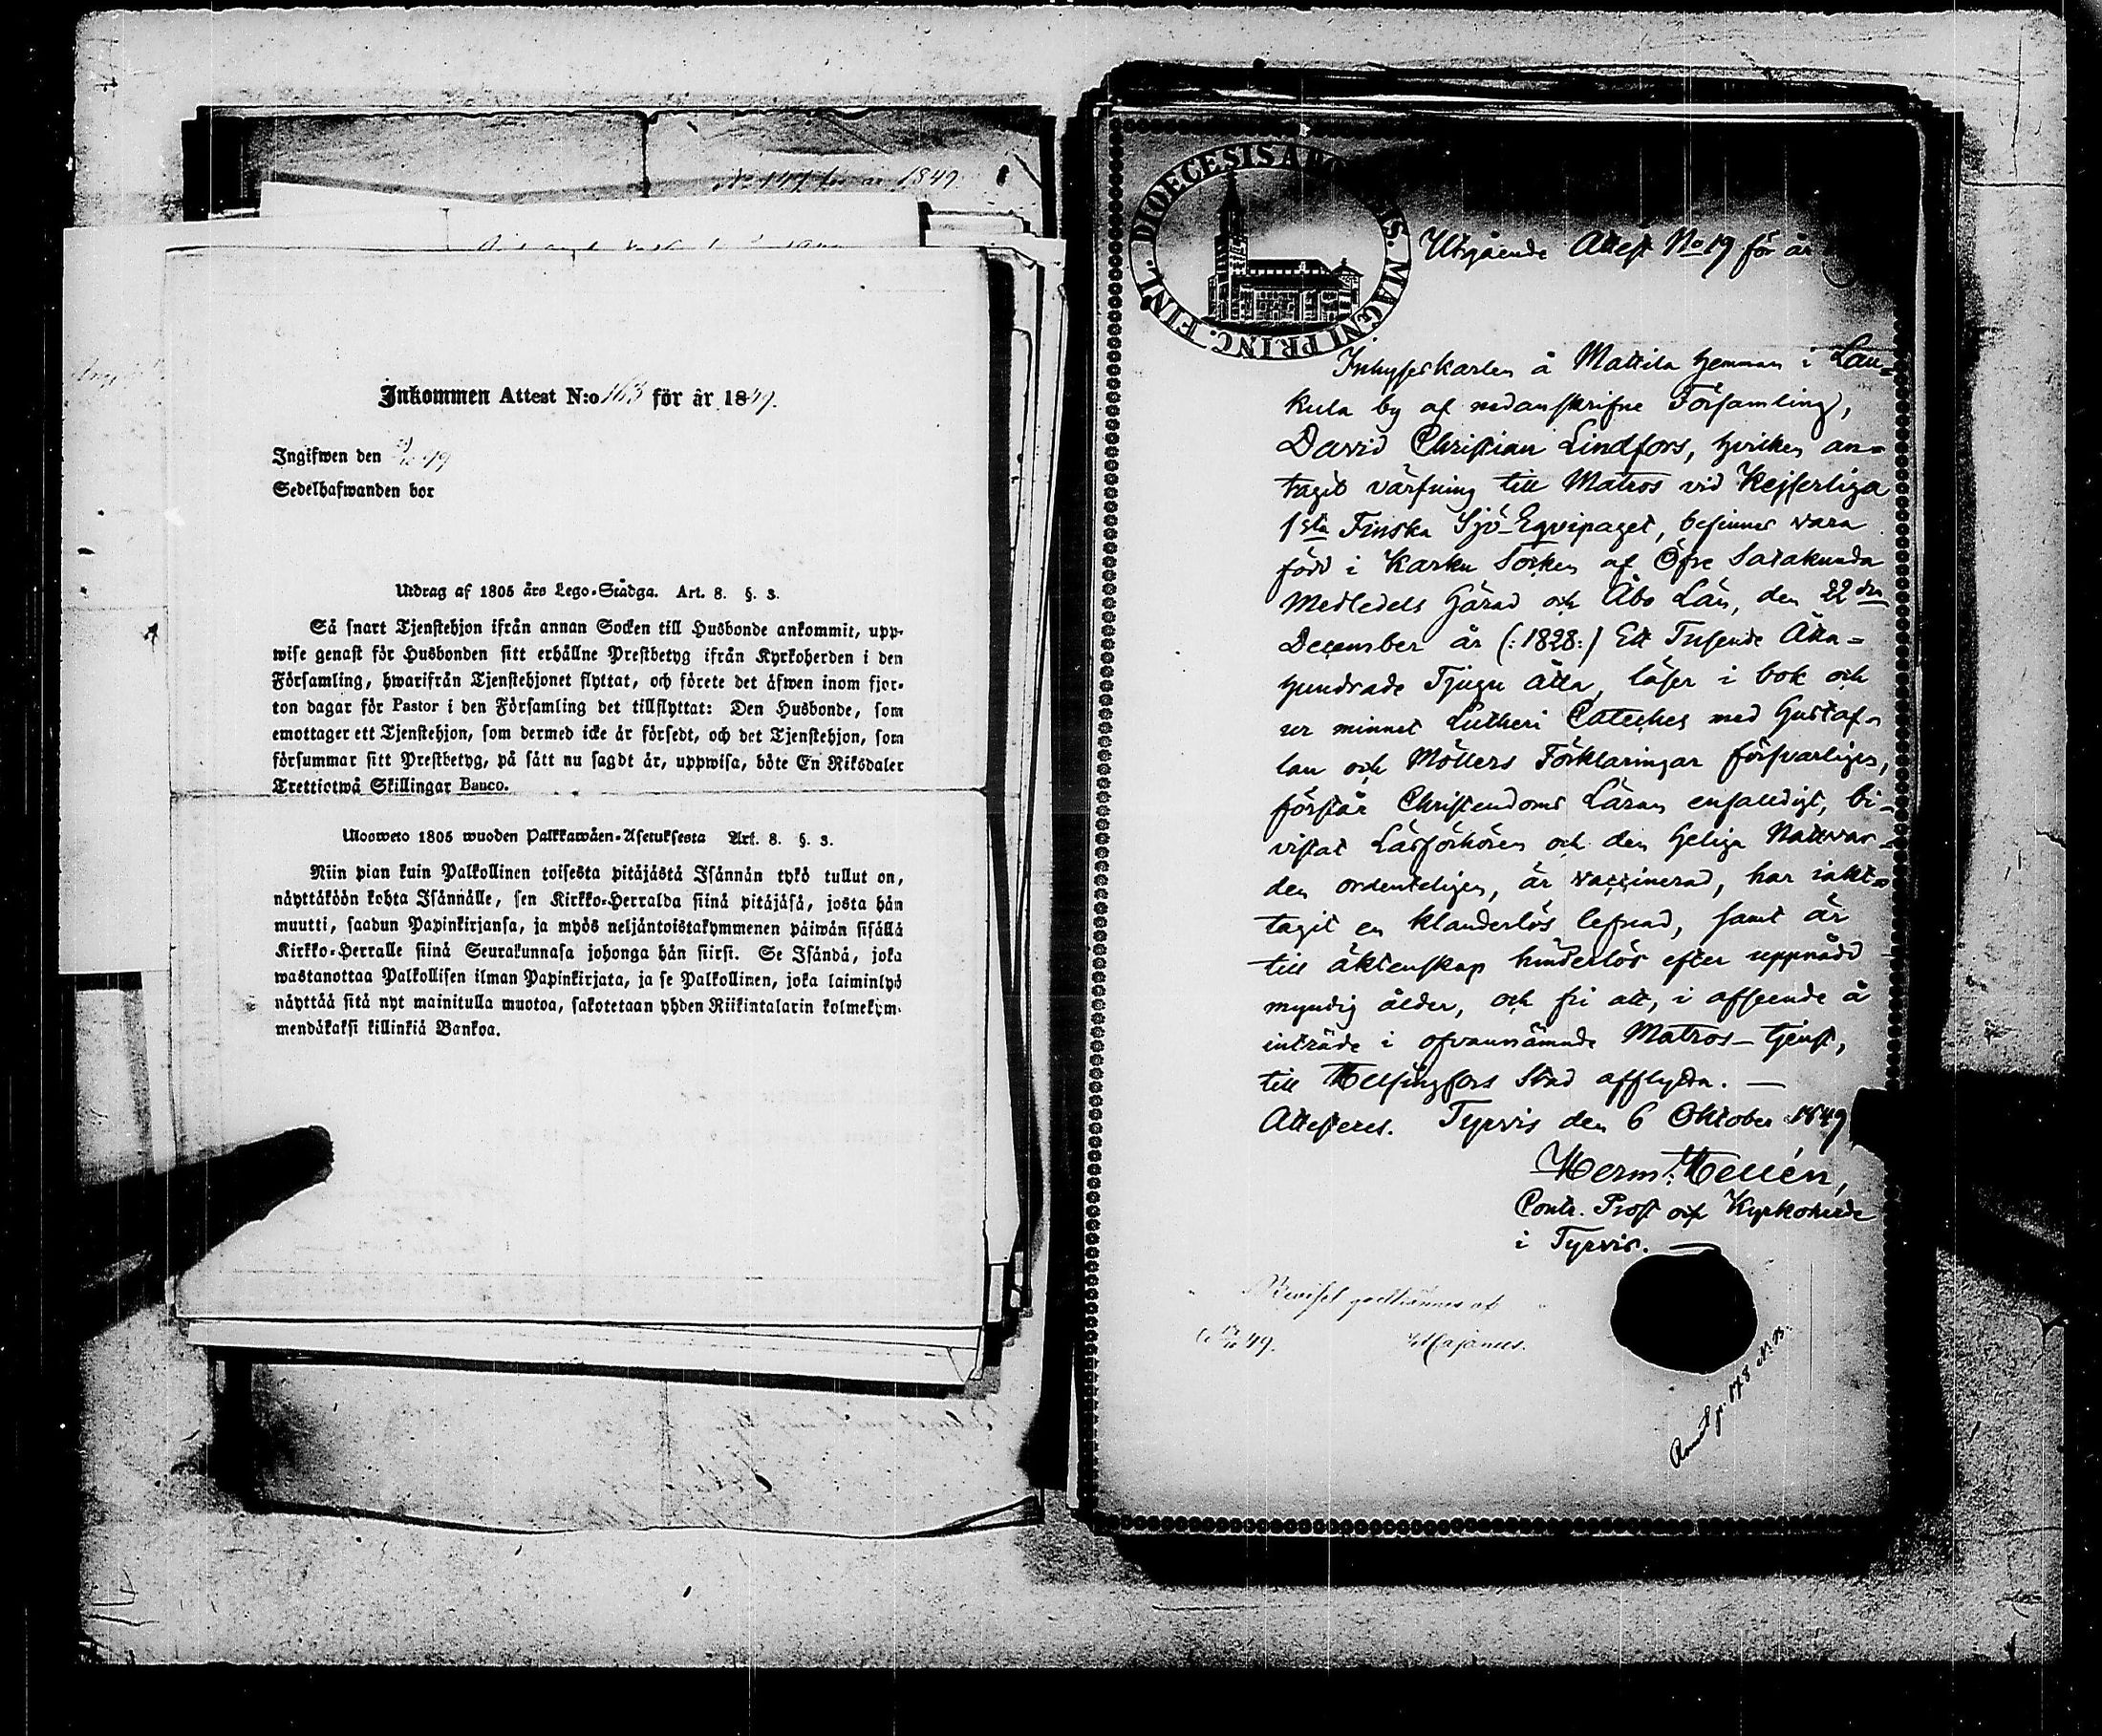 för år 1849.
Inkommen Attest N:o 163 för år 1849.
Ingifwen den
Sedelhafwanden bor
Utdrag af 1805 års Lego-Stadga. Art. 8. §. 3.
Så snart Tjenstehjon ifrån annan Socken till Husbonde ankommit, upp-
wise genast för Husbonden sitt erhållne Prestbetyg ifrån Kyrkoherden i den
Församling, hwarifrån Tjenstehjonet flyttat, och förete det äfwen inom fjor-
ton dagar för Pastor i den Församling det tillflyttat: Den Husbonde, som
emottager ett Tjenstehjon, som dermed icke är försedt, och det Tjenstehjon, som
försummar sitt Prestbetyg, på sätt nu sagdt är, uppwisa, böte En Riksdaler
Trettiotwå Skillingar Banco.
Uloosweto 1805 wuoden Palkkawäen-Asetuksesta Art. 8. §. 3.
Niin pian kuin Palkollinen toisesta pitäjästä Isännän tykö tullut on,
näyttäköön kohta Isännälle, sen Kirkko-Herralda siinä pitäjäsä, josta hän
muutti, saadun Papinkirjansa, ja myös neljäntoistakymmenen päiwän sisällä
Kirkko-Herralle siinä Seurakunnasa johonga hän siirsi. Se Isändä, joka
wastanottaa Palkollisen ilman Papinkirjata, ja se Palkollinen, joka laiminlyö
näyttää sitä nyt mainitulla muotoa, sakotetaan yhden Riikintalarin kolmekym-
mendäkaksi killinkiä Bankoa.
DIOECESIS MAGNI PRINC. FINL.
Utgående Attest No 19 för år
Inhyseskarlen å Mattila hemman i Lau-
kula by af nedanskrifne Församling,
David Christian Lindfors, hvilken an-
tagit värfning till Matros vid Kejserliga
1sta Finska Sjö-Eqvipaget, befinnes vara
född i Karku Socken af Öfre Satakunda
Medledels Härad och Åbo Län, den 22dra
December år (:1828:) Ett Tusende Åtta-
hundrade Tjugu åtta, läser i bok och
ur minnet Lutheri Cateches med Gustaf-
lan och Möllers Förklaringar försvarligen,
förstår Christendoms Läran enfaldigt, bi-
vistat Läsförhören och den Heliga Nattvar-
den ordenteligen, är vaccinerad, har iakt-
tagit en klanderlös lefnad, samt är
till äktenskap hinderlös efter uppnådd
myndig ålder, och fri att, i afseende å
inträde i ofvannämnde Matros-tjenst,
till Helsingfors Stad afflytta. —
Attesteres. Tyrvis den 6 Oktober 1849
Herm: Hellén,
Contr. Prost och Kyrkoherde
i Tyrvis. —
godkännes af